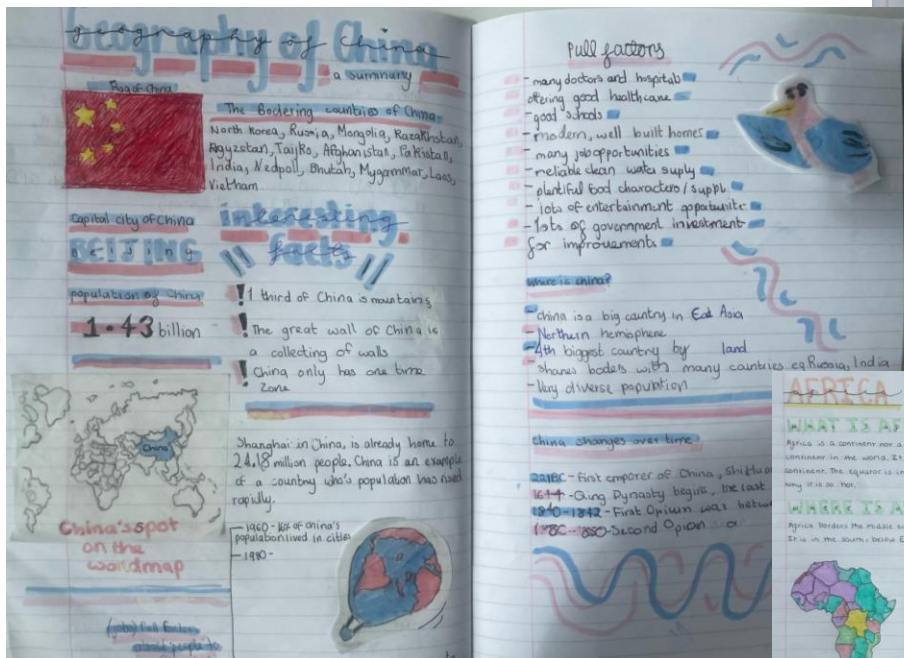 geography of China
a summary
Flag of China
The Bodering counties of China
North Korea, Russia, Mongolia, Kazakhstan,
Kygyzstan, Tajiko, Afghanistan, Pakistan,
India, Nedpoll, Bhutah, Mygammar, Laos,
Vietnam
Capital city of China
BEIJING
population of China
1.43 billion
interesting
facts
! 1 third of China is mountains
! The great wall of China is
a collecting of walls
! China only has one time
zone
China
China's spot
on the
worldmap
Shanghai in China, is already home to
24,18 million people. China is an example
of a country who's population has rised
rapidly.
1960 - of china's
population lived in cities
- 1980 -
(jobs) Pull Factors
people to
Pull factors
- many doctors and hospitals
offering good healthcare
- good schools
- modern, well built homes
- many job opportunities
- reliable clean water suply
- plentiful food characters/suppl
- lots of entertainment
- lots of government investment
for improvements
where is china?
- china is a big cauntry in East Asia
- Northern hemisphere
- 4th biggest country by land
- shares boders with many countries eg Russia, India
- Very diverse population
china changes over time
221BC - First emporer of China,
1644 - Qing Dynasty begins, the last
1840 - 1842 - First Opium was
Second Opium
AFRICA
WHAT IS AF
Africa is a continent not a
continent in the world. It
continent. The equator is in
why it is so hot.
WHERE IS A
Africa borders the middle
It is in the south, below E